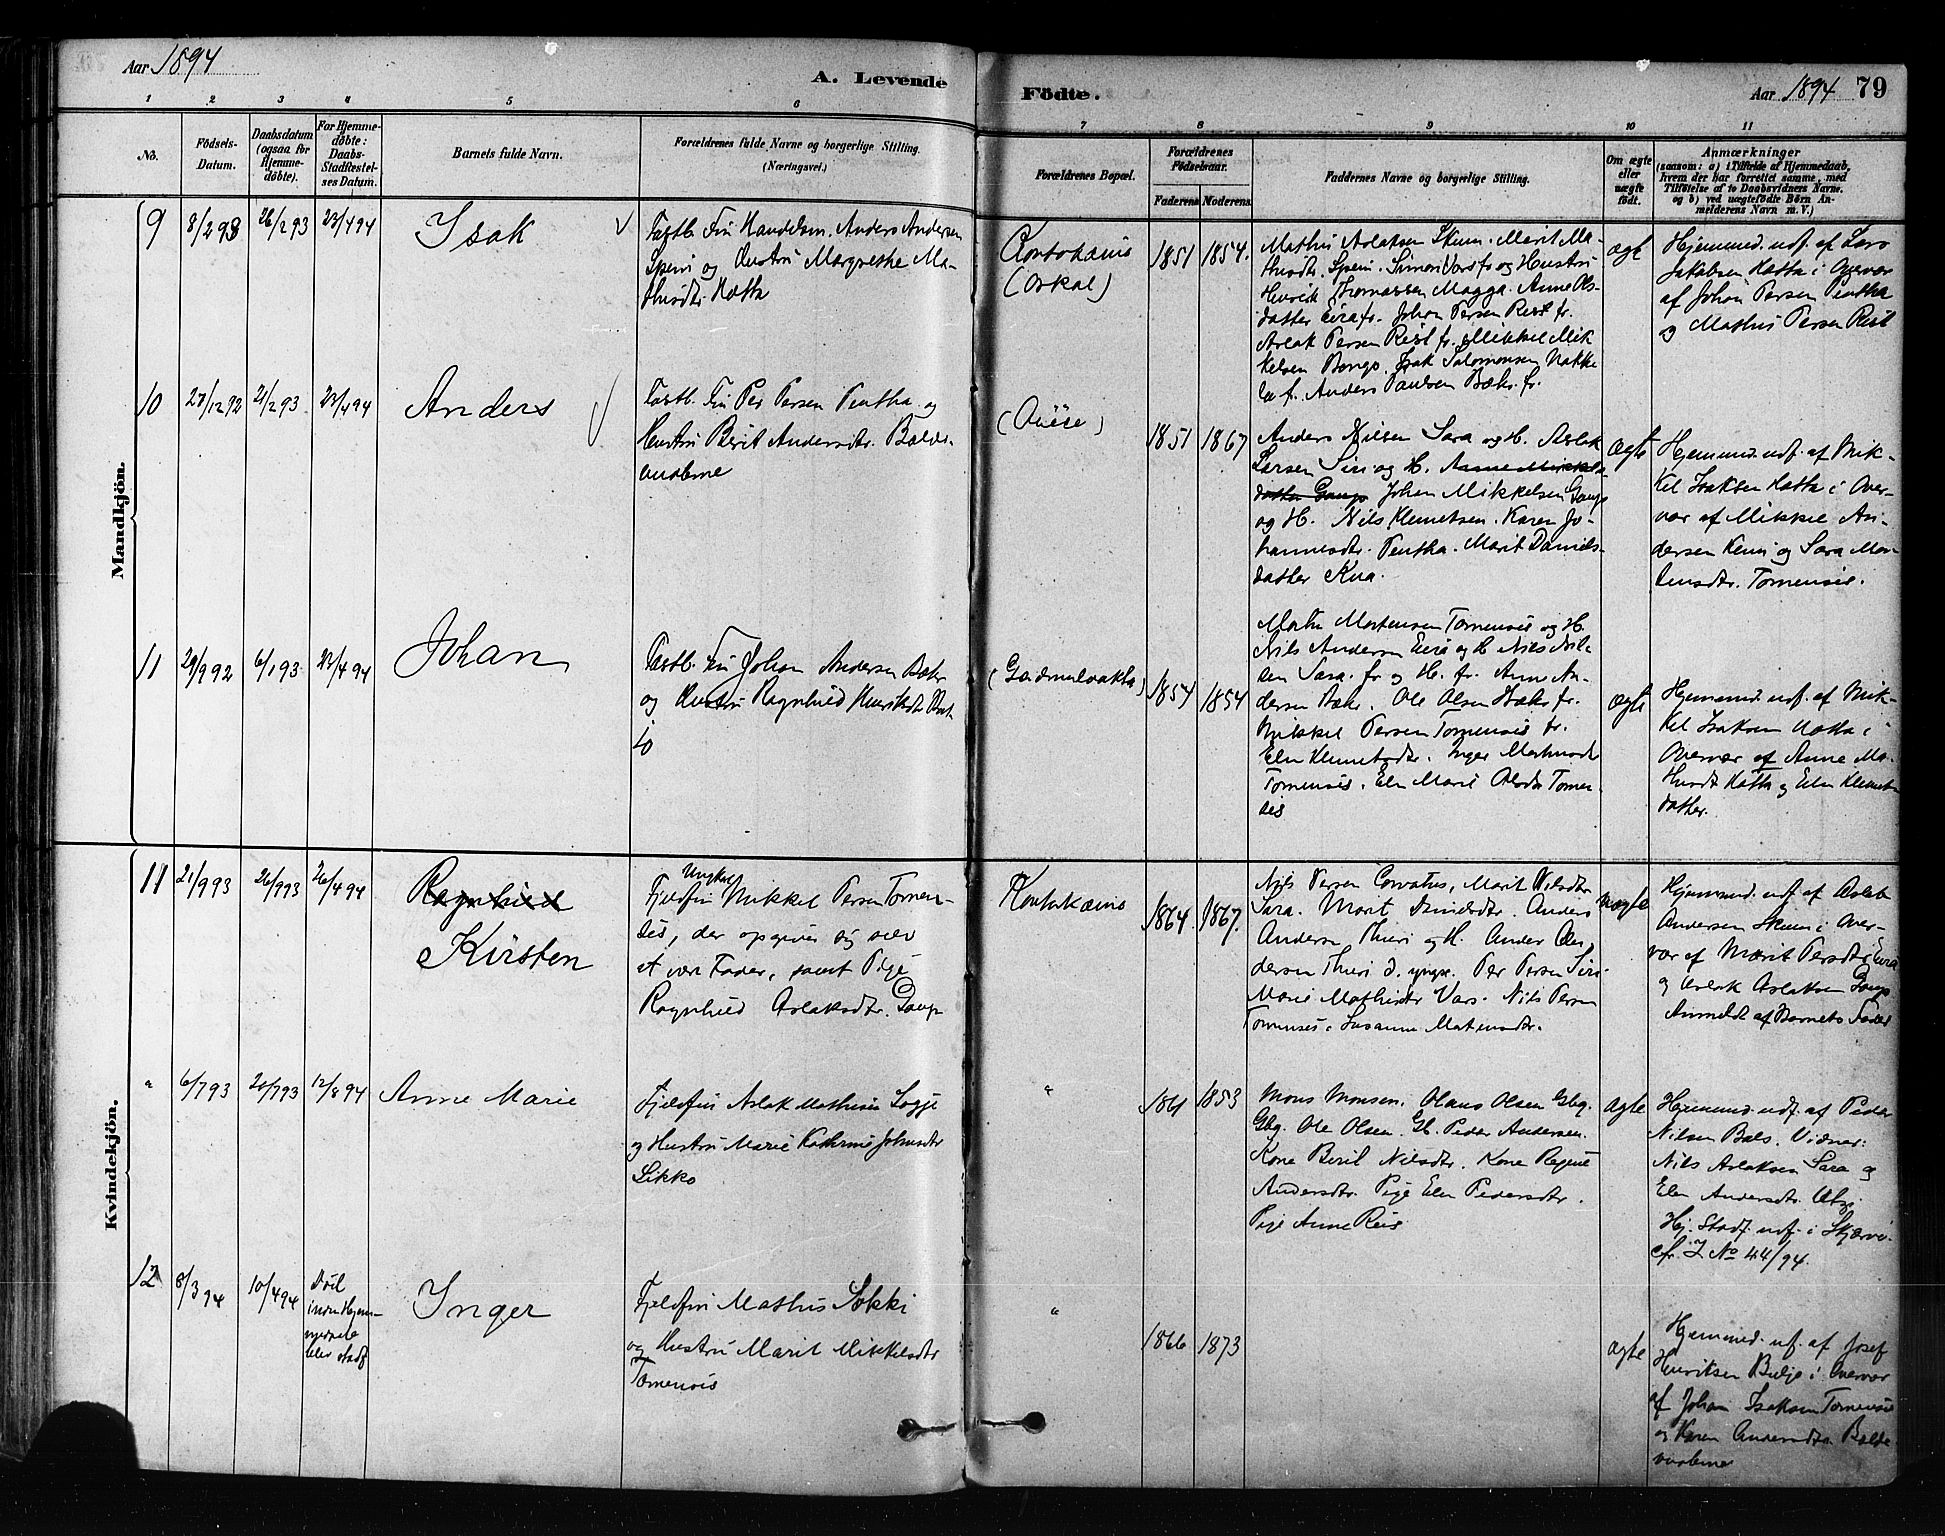 Aar 1894
A. Levende
Födte.
Aar 1894 79
1 2 3 4 5 6 7 8 9 10 11
No.
Födsels-
Datum.
Daabsdatum
(ogsaa for
Hjemme-
döbte).
For Hjemme-
döbte:
Daabs-
Stadfæstel-
ses Datum.
Barnets fulde Navn.
Forældrenes fulde Navne og borgerlige Stilling.
(Næringsvei.)
Forældrenes Bopæl.
Forældrenes
Födselsaar.
Faderens Moderens
Faddernes Navne og borgerlige Stilling.
Om ægte
eller
uægte
födt.
Anmærkninger
(saasom: a) i Tilfælde af Hjemmedaab,
hvem der har forrettet samme, med
Tilföielse af to Daabsvidners Navne,
og b) ved uægtefödte Börn An-
melderens Navn m. V.)
Mandkjön.
9 8/2 93 26/2 93 23/4 94 Isak
Fastb. Fin Handelsm. Anders Andersen
Spein og Hustru Margrethe Ma-
thisdtr. Hætta
Koutokæino
(Oskal)
1851 1854.
Mathis Aslaksen Skum. Marit Ma-
thisdtr. Spein. Simon Vars fr og Hustru
Henrik Thomassen Magga. Anne Ols-
datter Eira fr. Johan Persen Rist fr.
Aslak Persen Rist fr. Mikkel Mik
kelsen Bongo. Isak Salomonsen Nakke
la f. Anders Paulsen Bæhr. fr.
ægte
Hjemmed. udf. af Lars
Jakobsen Hætta i Overvær
af Johan Persen Pentha
og Mathis Persen Rist
10 27/12 92 2/2 93 23/4 94 Anders
Fastb. Fin Per Persen Pentha og
Hustru Berit Andersdtr. Balde-
vuobme
1851 1867
Anders Nilsen Sara og H. Aslak
Larsen Siri og H. Anne Mikkels
datter Gaup Johan Mikkelsen Gaup
og H. Nils Klemetsen. Karen Jo-
hannesdtr. Pentha. Marit Daniels-
datter Kua.
ægte
Hjemmed. udf. af Mik-
kel Isaksen Hætta i Over-
vær af Mikkel An-
dersen Kemi og Sara Mor-
tensdtr. Tornensis.
11 29/9 92 6/1 93 23/4 94 Johan
Fastb. Fin Johan Andersen Bæhr
og Hustru Ragnhild Henriksdtr.
1854 1854
Morten Mortensen Tornensis og H.
Nils Andersen Eira og H Nils Nil-
sen Sara fr og H. fr. Anne An-
dersen Bæhr. Ole Olsen Bæhr fr.
Mikkel Persen Tornensis fr.
Elen Klemetsdtr. Inger Mathisdtr
Tornensis. Elen Marit Olsdtr Tornen-
sis
ægte
Hjemmed. udf. af Mik-
kel Isaksen Hætta i
Overvær af Anne Ma-
thisdtr Hætta og Elen Klemets
datter.
Kvindekjön.
11 21/9 93 26/9 93 26/4 94 Ragnhild
Kirsten
Ungkarl
Fjeldfin Mikkel Persen Tornen-
sis, der opgiver sig selv
at være Fader, samt Pige
Ragnhild Aslaksdtr. Gaup
Koutokæino
1864. 1867.
Nils Persen Corvatus, Marit Nilsdtr
Sara. Marit Danielsdtr. Anders
Andersen Thuri og H. Anders An-
dersen Thuri d. yngre. Per Persen Siri
Marie Mathisdtr Vars. Nils Persen
Tornensis. Susanne Matensdtr.
uægte
Hjemmed. udf. af Aslak
Andersen Skum i Over-
vær af Marit Persdtr Eira
og Aslak Aslaksen Gaup
Anmeldt af Barnets Fader
" 6/7 93 20/7 93 12/8 94 Anne Marie
Fjeldfin Aslak Mathisen Logje
og Hustru Marie Kathrine Johnsdtr
Sikko
"
1861 1853
Mons Monsen. Olaus Olsen Gbg.
Gbg. Ole Olsen. Gb. Peder Andersen.
Kone Beril Nilsdtr. Kone Regine
Andersdtr. Pige Elen Pedersdtr.
Pige Anne Reis
ægte
Hjemmed. udf. af Peder
Nilsen Bals. Vidner:
Nils Aslaksen Sara og
Elen Andersdtr. Utsi
Hj. Stadf. udf. i Skjærvö
cfr. I No 44/94.
12 8/3 94 10/4 94
Död
inden Hjem-
medaab
blev stadf
Inger
Fjeldfin Mathis Sokki
og Hustru Marit Mikkelsdtr
Tornensis
"
1866 1873
ægte
Hjemmed. udf. af Josef
Henriksen Buljo i Overvær
af Johan Isaksen Tornensis
og Karen Andersdtr Balde
vuobme